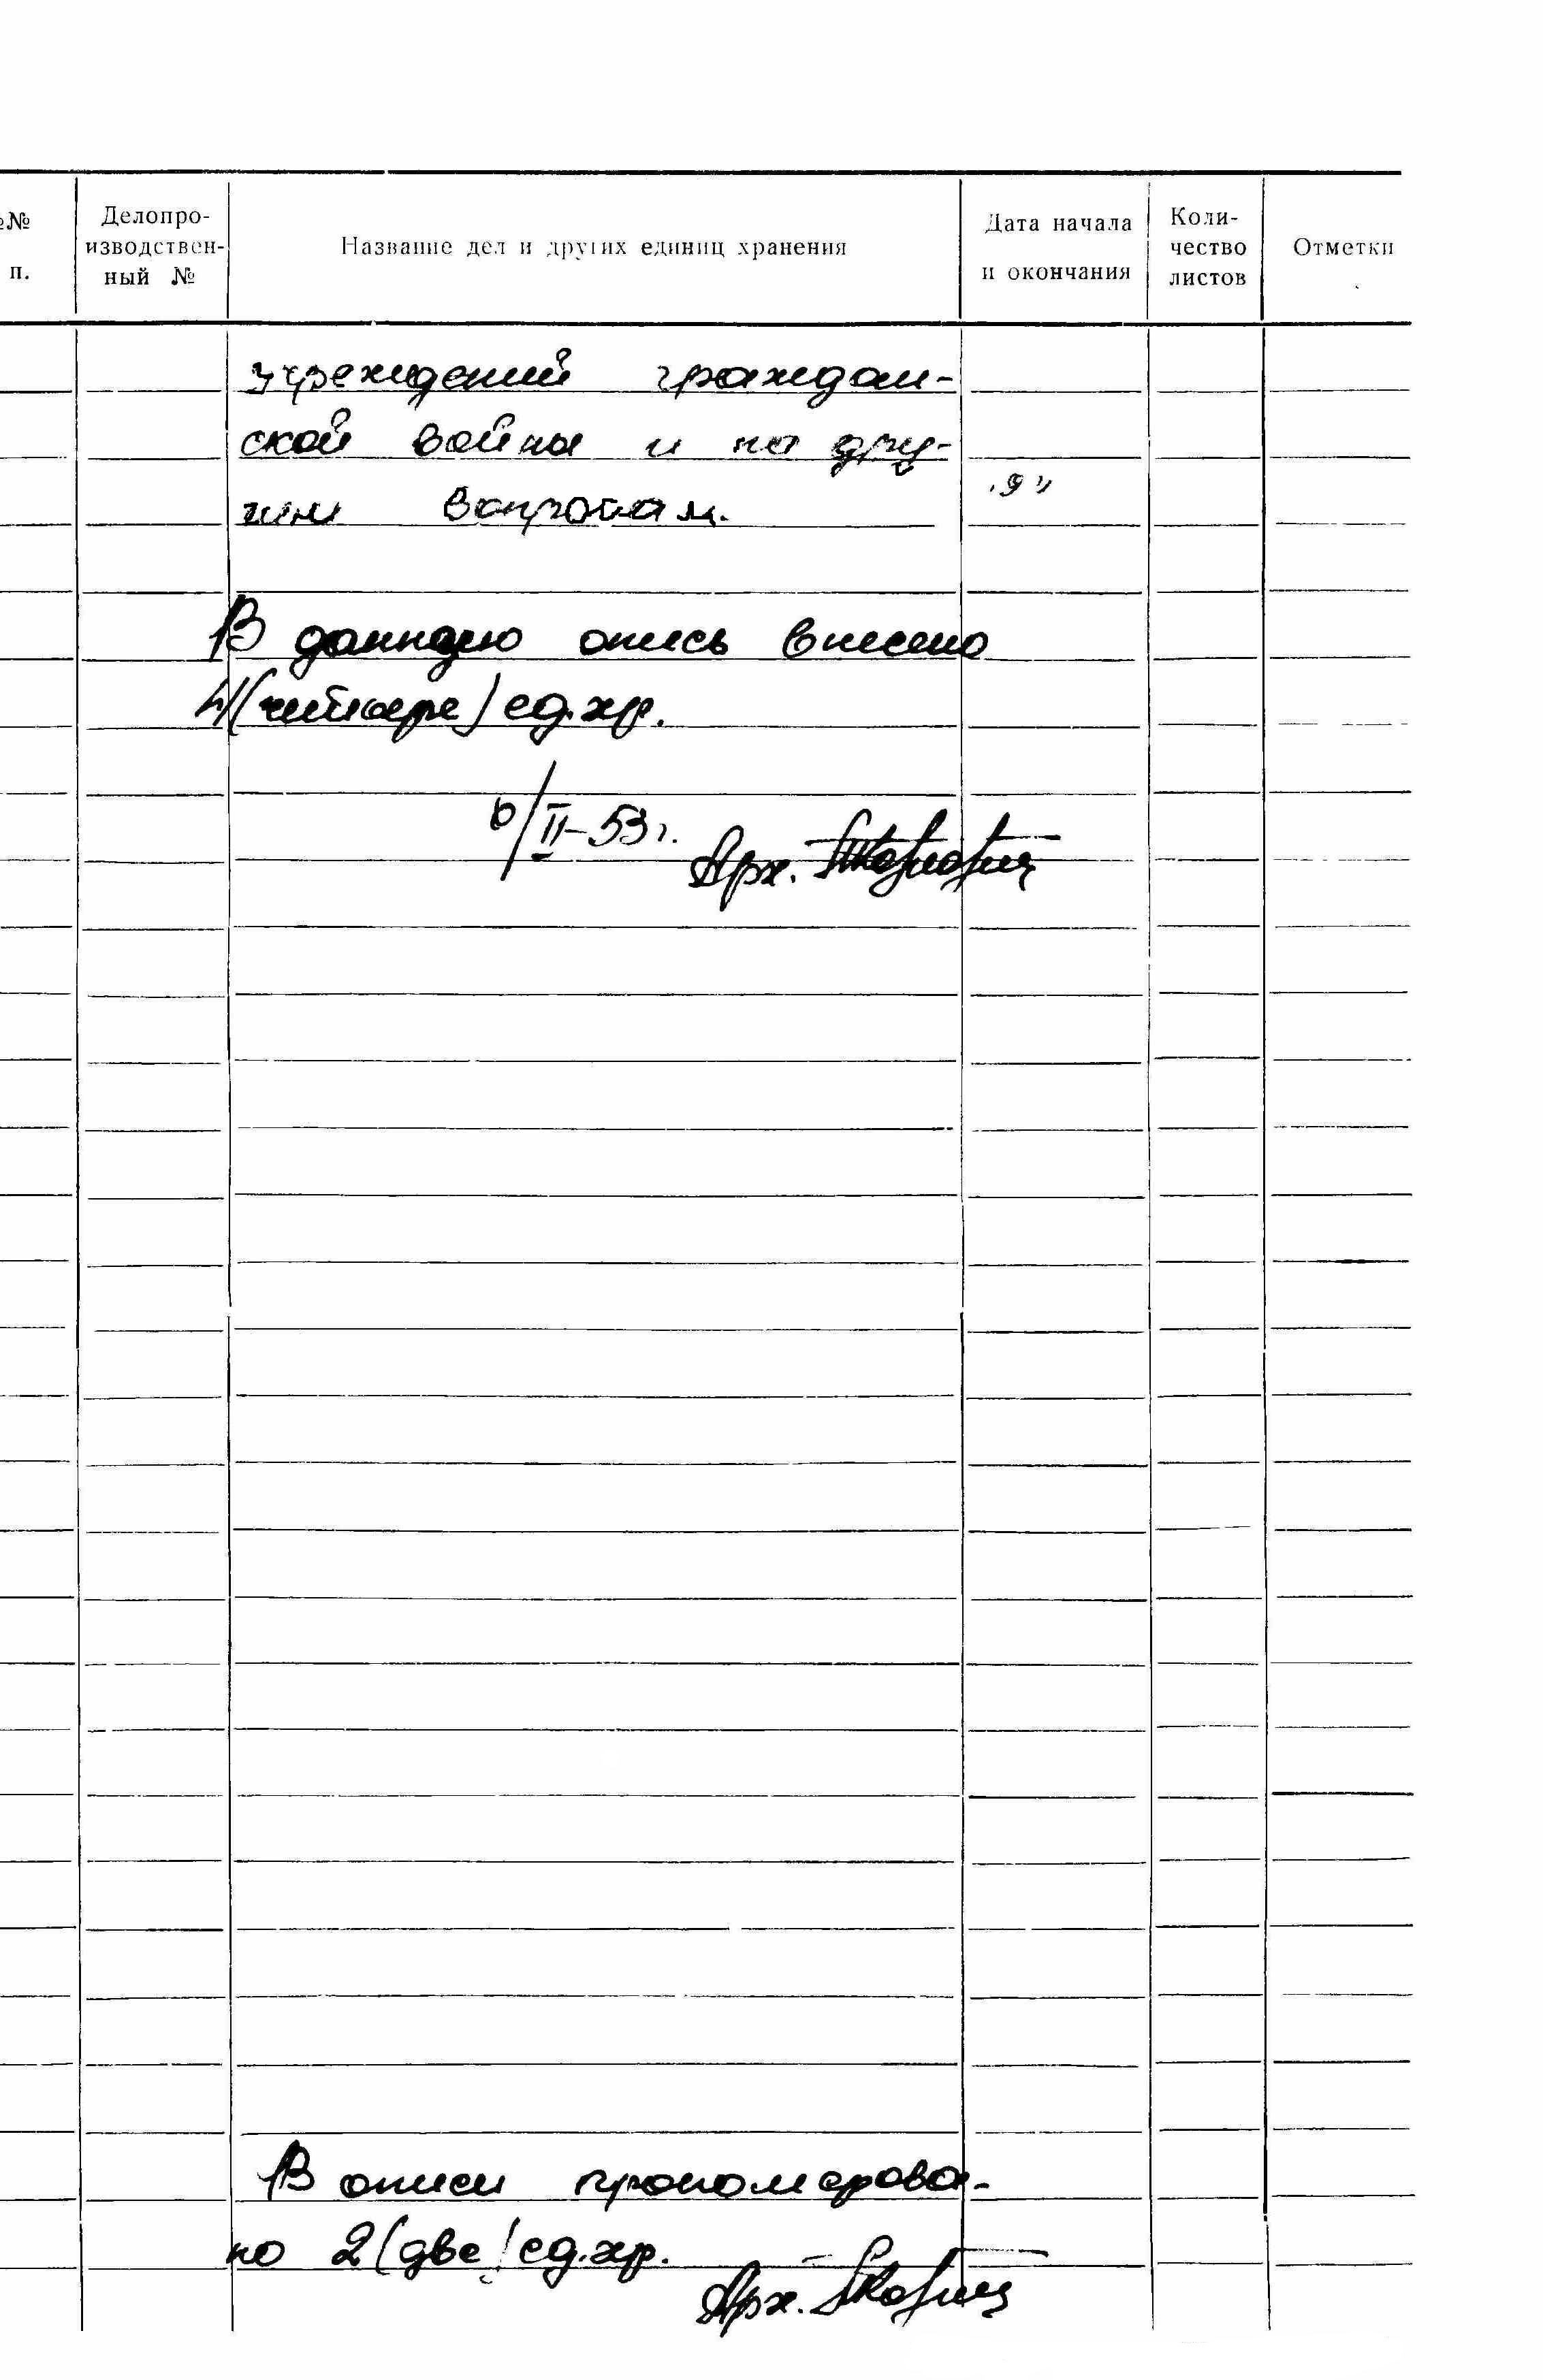 №№ п.
Делопро-
изводствен-
ный №
Название дел и других единиц хранения
Дата начала
и окончания
Коли-
чество
листов
Отметки
учреждений граждан-
ской войны и по дру-
гим вопросам.
В данную опись внесено
4/(четыре) ед.хр.
6/II-53 г.
Арх.
В описи пронумерова-
но 2(две) ед.хр.
Арх.